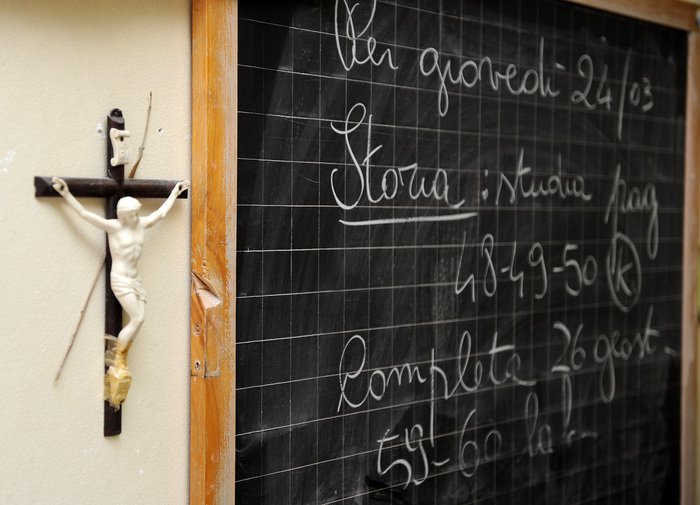 Per giovedì 24/03
Storia: studia pag
48-49-50 (K)
Completa 26 geost.
59-60